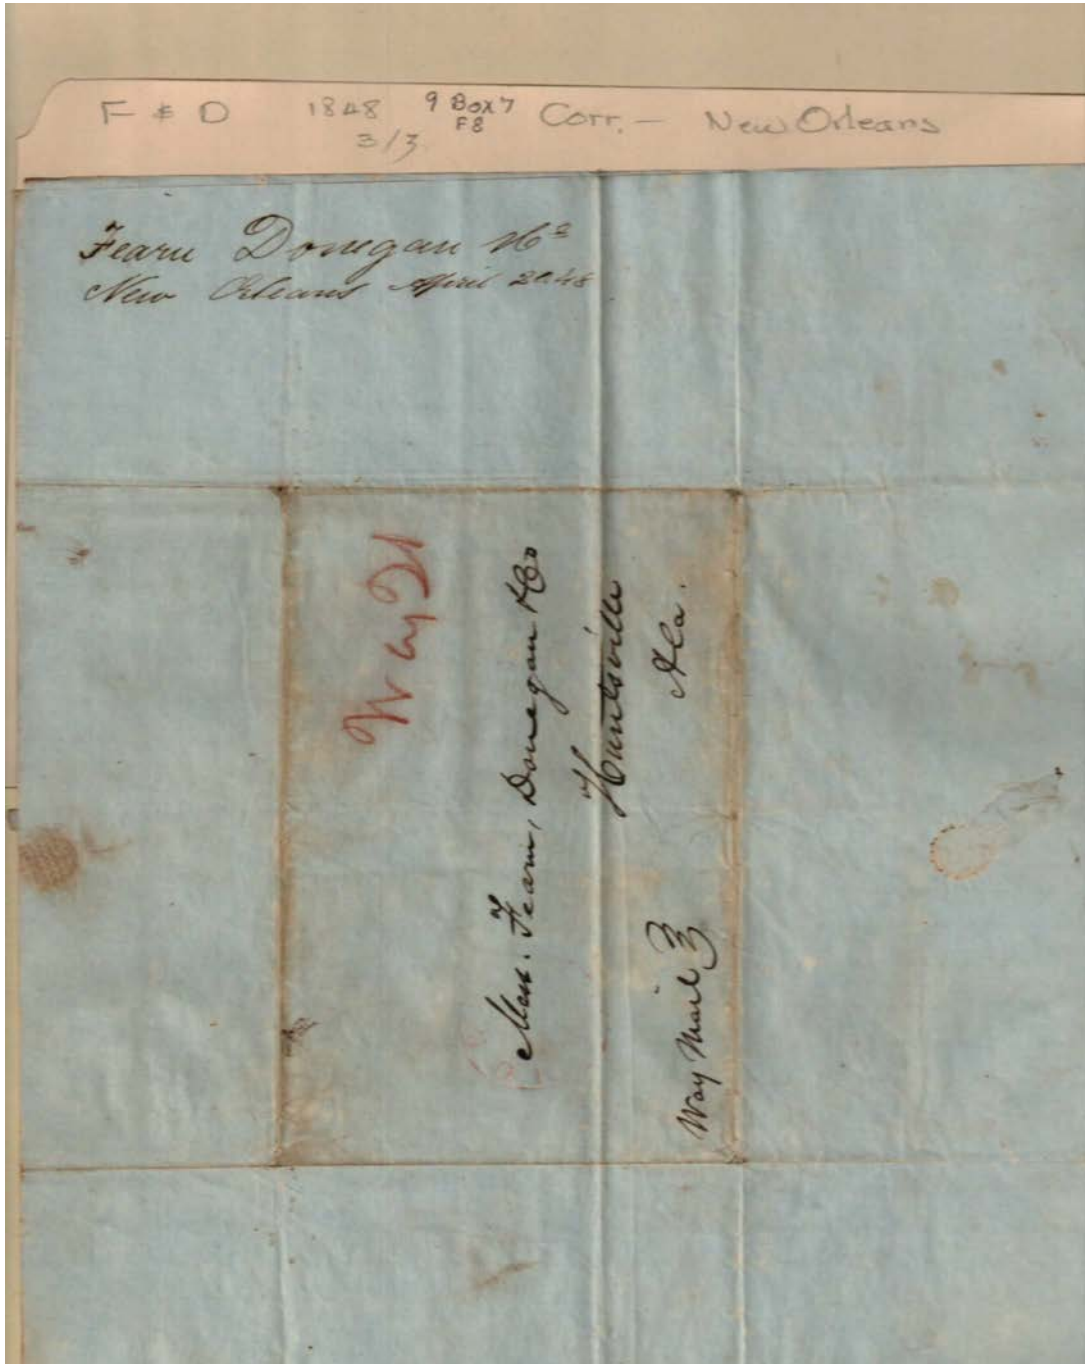 F & D 1848 9 Box 7 Corr. — New Orleans
3/3 F8
Fearn Donegan &Co
New Orleans April 20. 48
Way 21
Mess. Fearn, Donegan &Co
Huntsville
Ala.
Way Mail